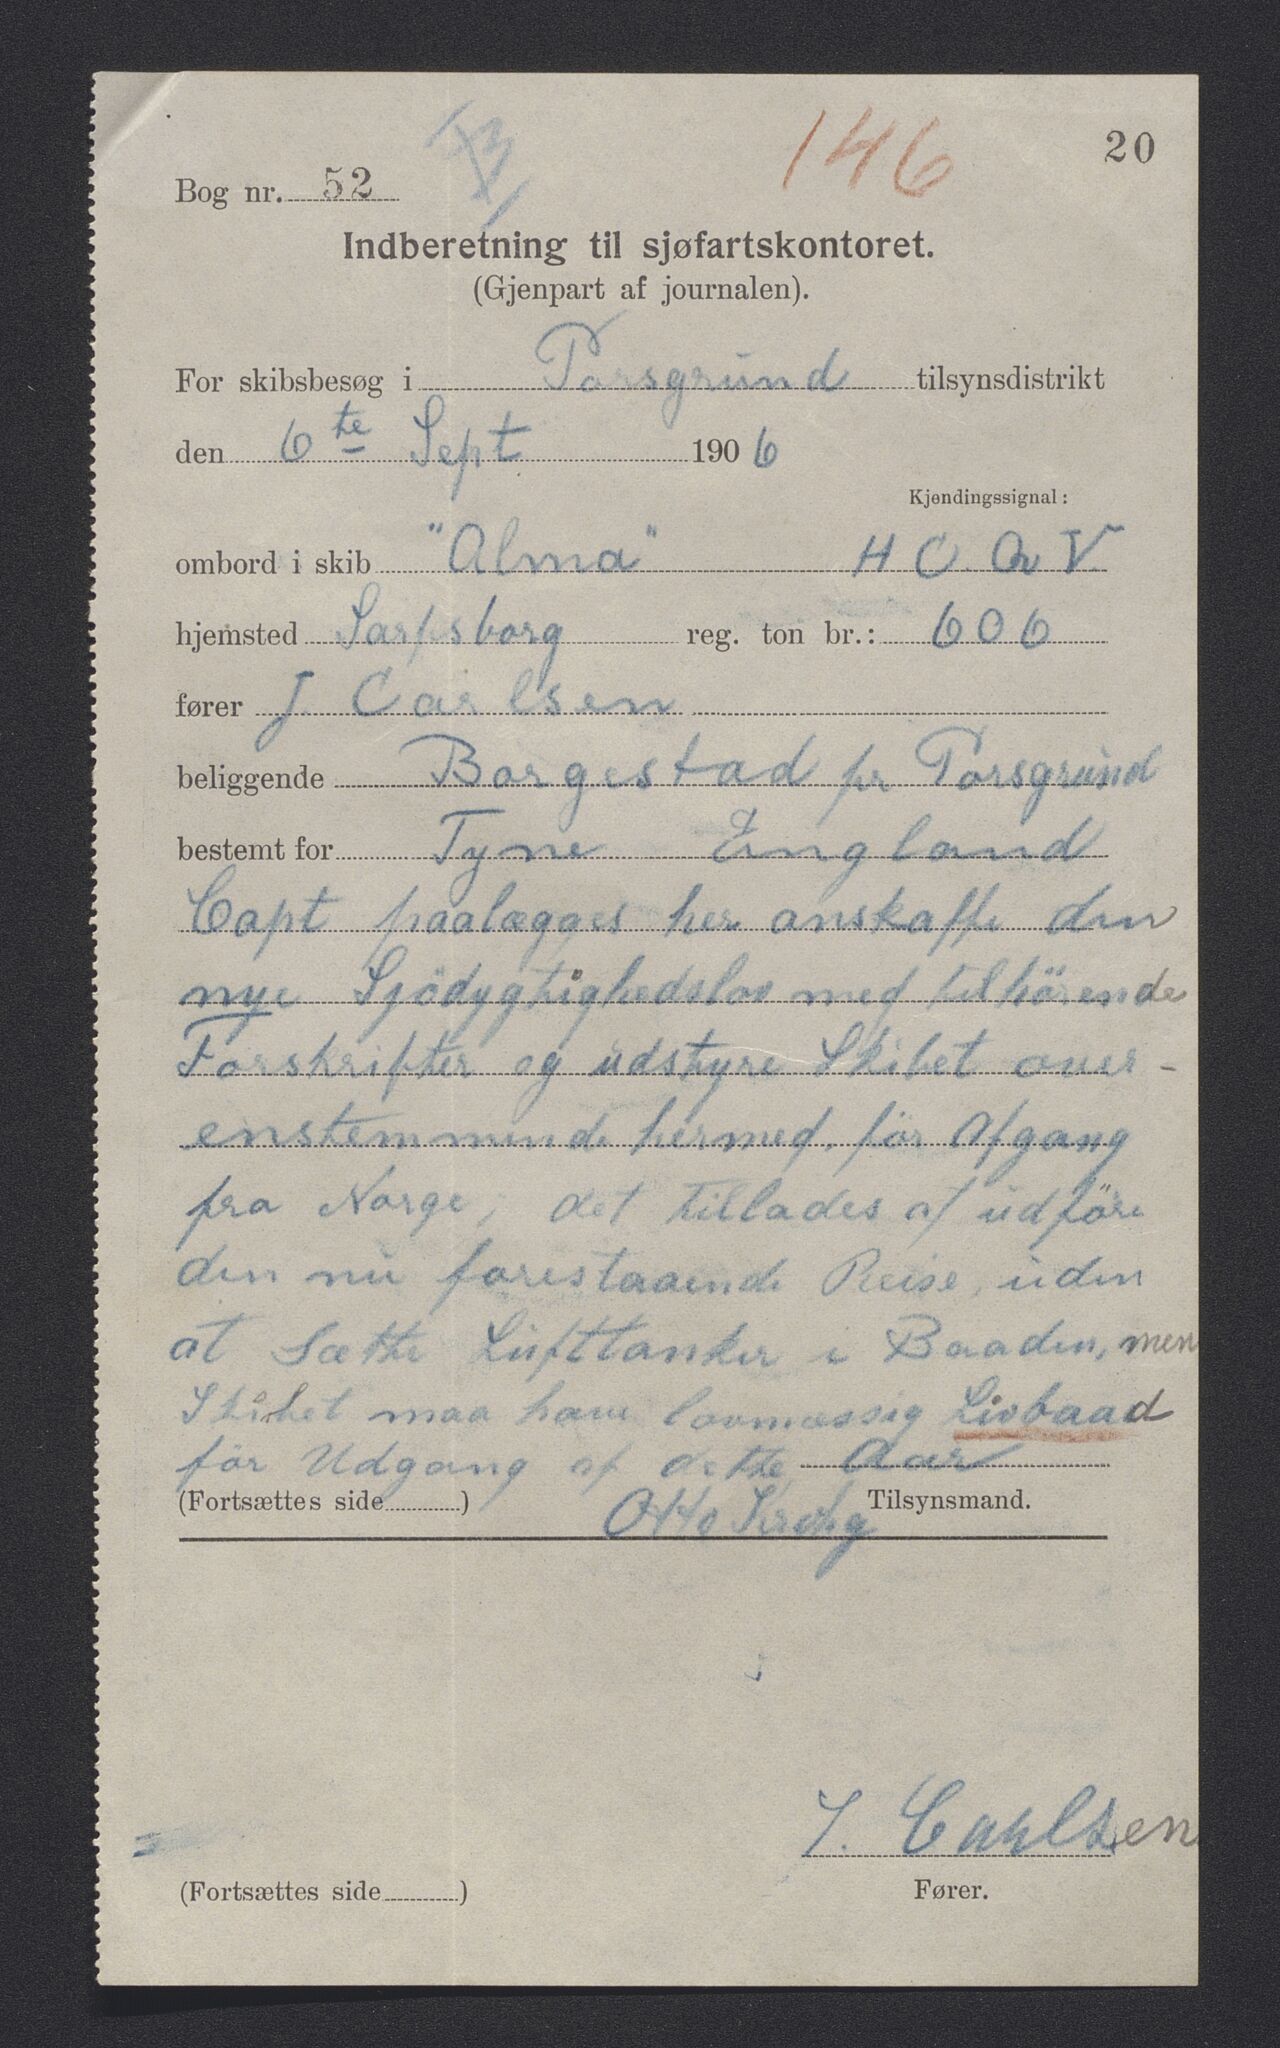 146
20
Bog nr. 52
Indberetning til sjøfartskontoret.
(Gjenpart af journalen).
For skibsbesøg i Porsgrund tilsynsdistrikt
den 6te Sept 1906
Kjendingssignal:
ombord i skib "Alma" H C. Q V.
hjemsted Sarpsborg reg. ton br.: 606
fører J. Carlsen
beliggende Borgestad pr Porsgrund
bestemt for Tyne England
Capt paalægges her anskaffe den
nye Sjödygtighedslov med tilhörende
Forskrifter og udstyre Skibet over-
enstemmende hermed, för Afgang
fra Norge; det tillades at udföre
den nu forestaaende Reise, uden
at sætte Lufttanker i Baaden, men
Skibet maa have lovmæssig Livbaad
før Udgang af dette Aar
(Fortsættes side ) Tilsynsmand.
Otto Krohg
J. Carlsen
(Fortsættes side ) Fører.